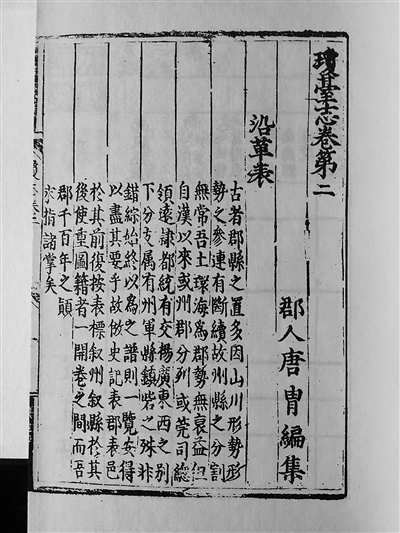 瓊臺志卷第二
郡人唐冑編集
沿革表
古者郡縣之置多因山川形勢形
勢之參連有斷續故州縣之分割
無常吾土環海爲郡勢無裒益但
自漢以來或州郡分列或莞司總
領遠隸都統有交楊廣東西之别
下分支属有州軍縣鎮砦之殊非
錯綜始終以為之譜則一覽安得
以盡其要乎故倣史記表郡表邑
於其前復按表標叙州叙縣於其
後使重圖籍者一開卷之間而吾
郡千百年之顛
末指諸掌矣